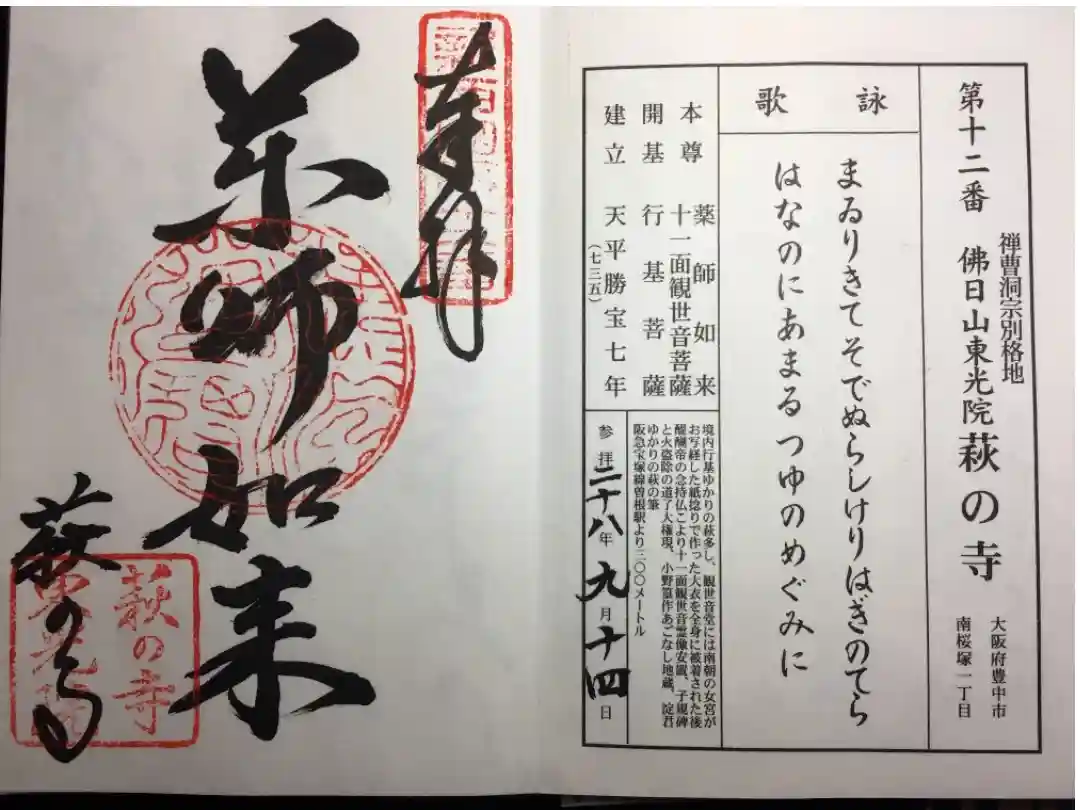 第十二番
禅曹洞宗別格地
佛日山東光院萩の寺
大阪府豊中市
南桜塚一丁目
詠歌
まゐりきてそでぬらしけりはぎのてら
はなのにあまるつゆのめぐみに
本尊 薬師如来
十一面観世音菩薩
開基 行基菩薩
建立 天平勝宝七年
(七三五)
境内行基ゆかりの萩多し、観世音堂には南朝の女官が
お写経した紙捻りで作った大衣を全身に被着された後
醍醐帝の念持仏こより十一面観世音霊像安置、子規碑
と火盗除の道了大権現、小野篁作あごなし地蔵、淀君
ゆかりの萩の筆
阪急宝塚線曽根駅より三〇〇メートル
参拝二十八年九月十四日
奉拝
薬師如来
萩の寺
萩の寺
東光院